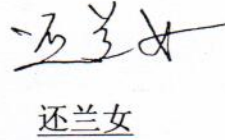 还兰女
还兰女